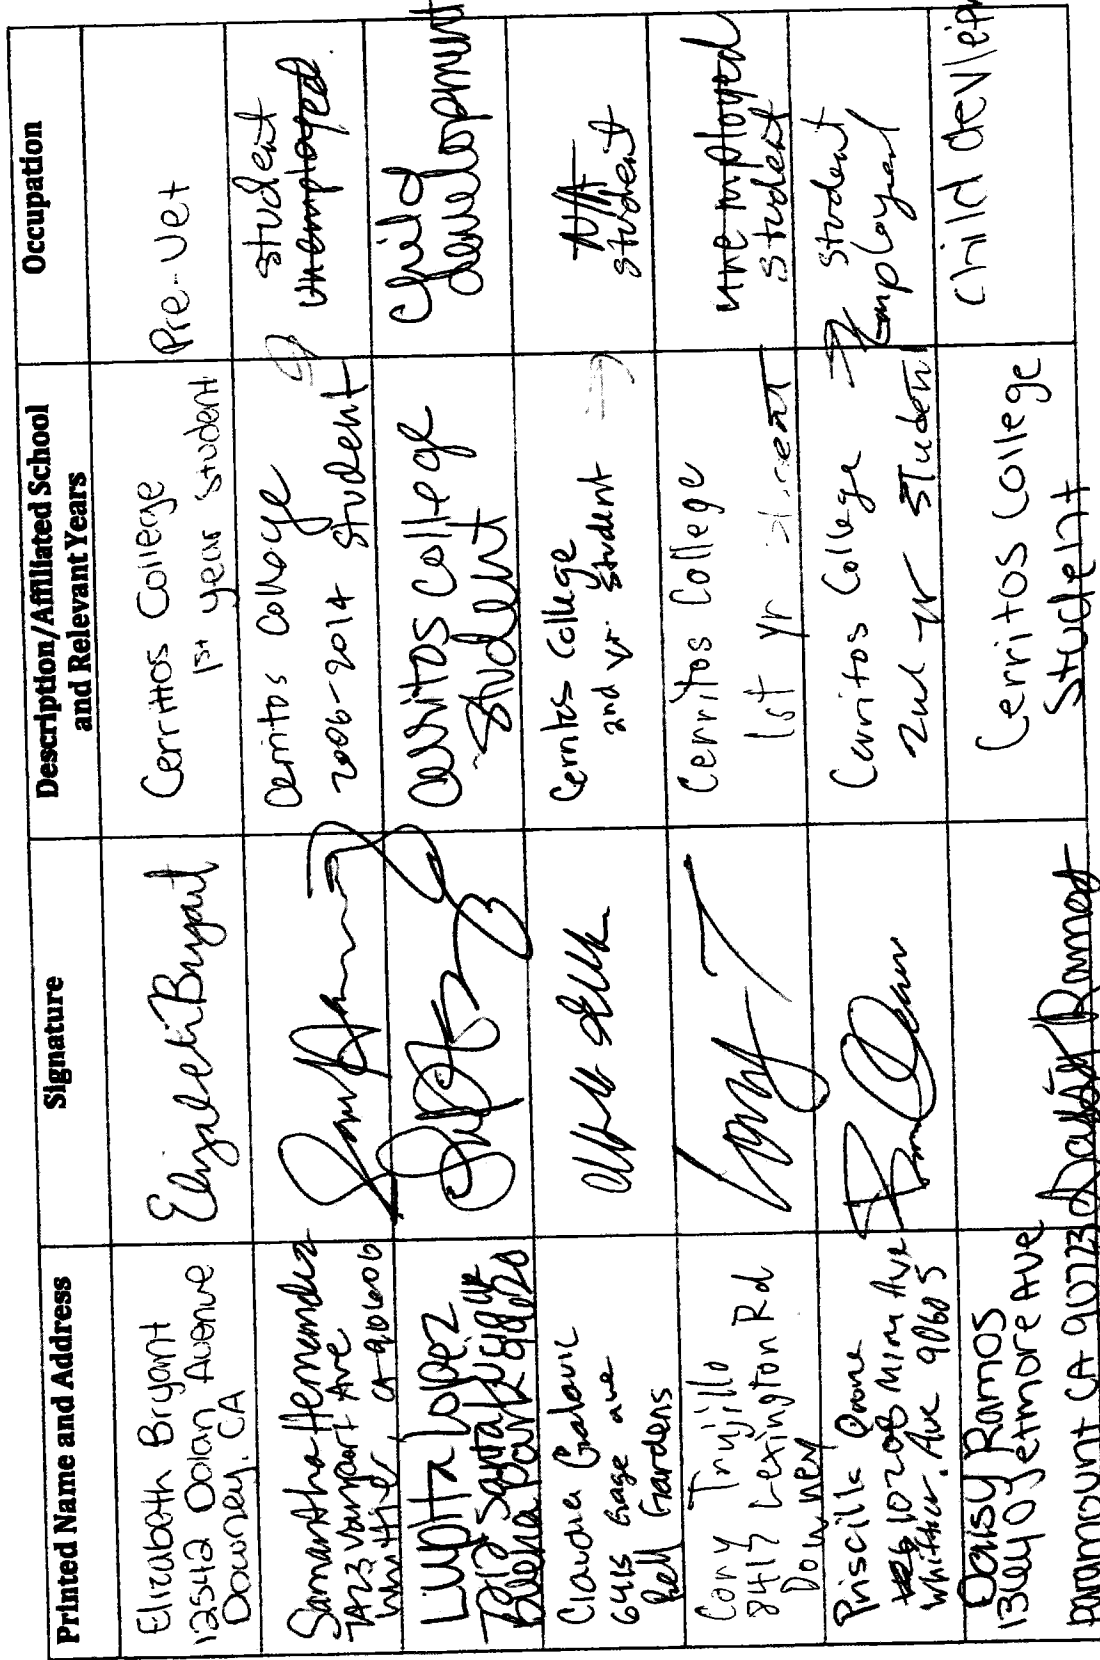 Printed Name and Address
Signature
Description/Affiliated School
and Relevant Years
Occupation
Elizabeth Bryant
12542 Dolan Avenue
Downey, CA
Elizabeth Bryant
Cerrittos College
1st year student
Pre-vet
Samantha Hernandez
Ave
Whittier, CA 90606
Cerritos College
2006-2014 student
student
unemployed
Lupita Lopez
7212 Santa
Buena Park
Cerritos College
Student
Child
development
Claudia
6415 Gage ave
Bell Gardens
Cerritos College
2nd yr. student
N/A
student
Cory Trujillo
8417 Lexington Rd
Downey
Cerritos College
1st yr
unemployed
student
Priscilla
10208 Mina Ave
Whittier. Ave 90605
Cerritos College
2nd yr student
student
Employed
Daisy Ramos
13640 Jetmore Ave
Paramount CA 90723
Daisy Ramos
Cerritos College
Student
Child devlepm